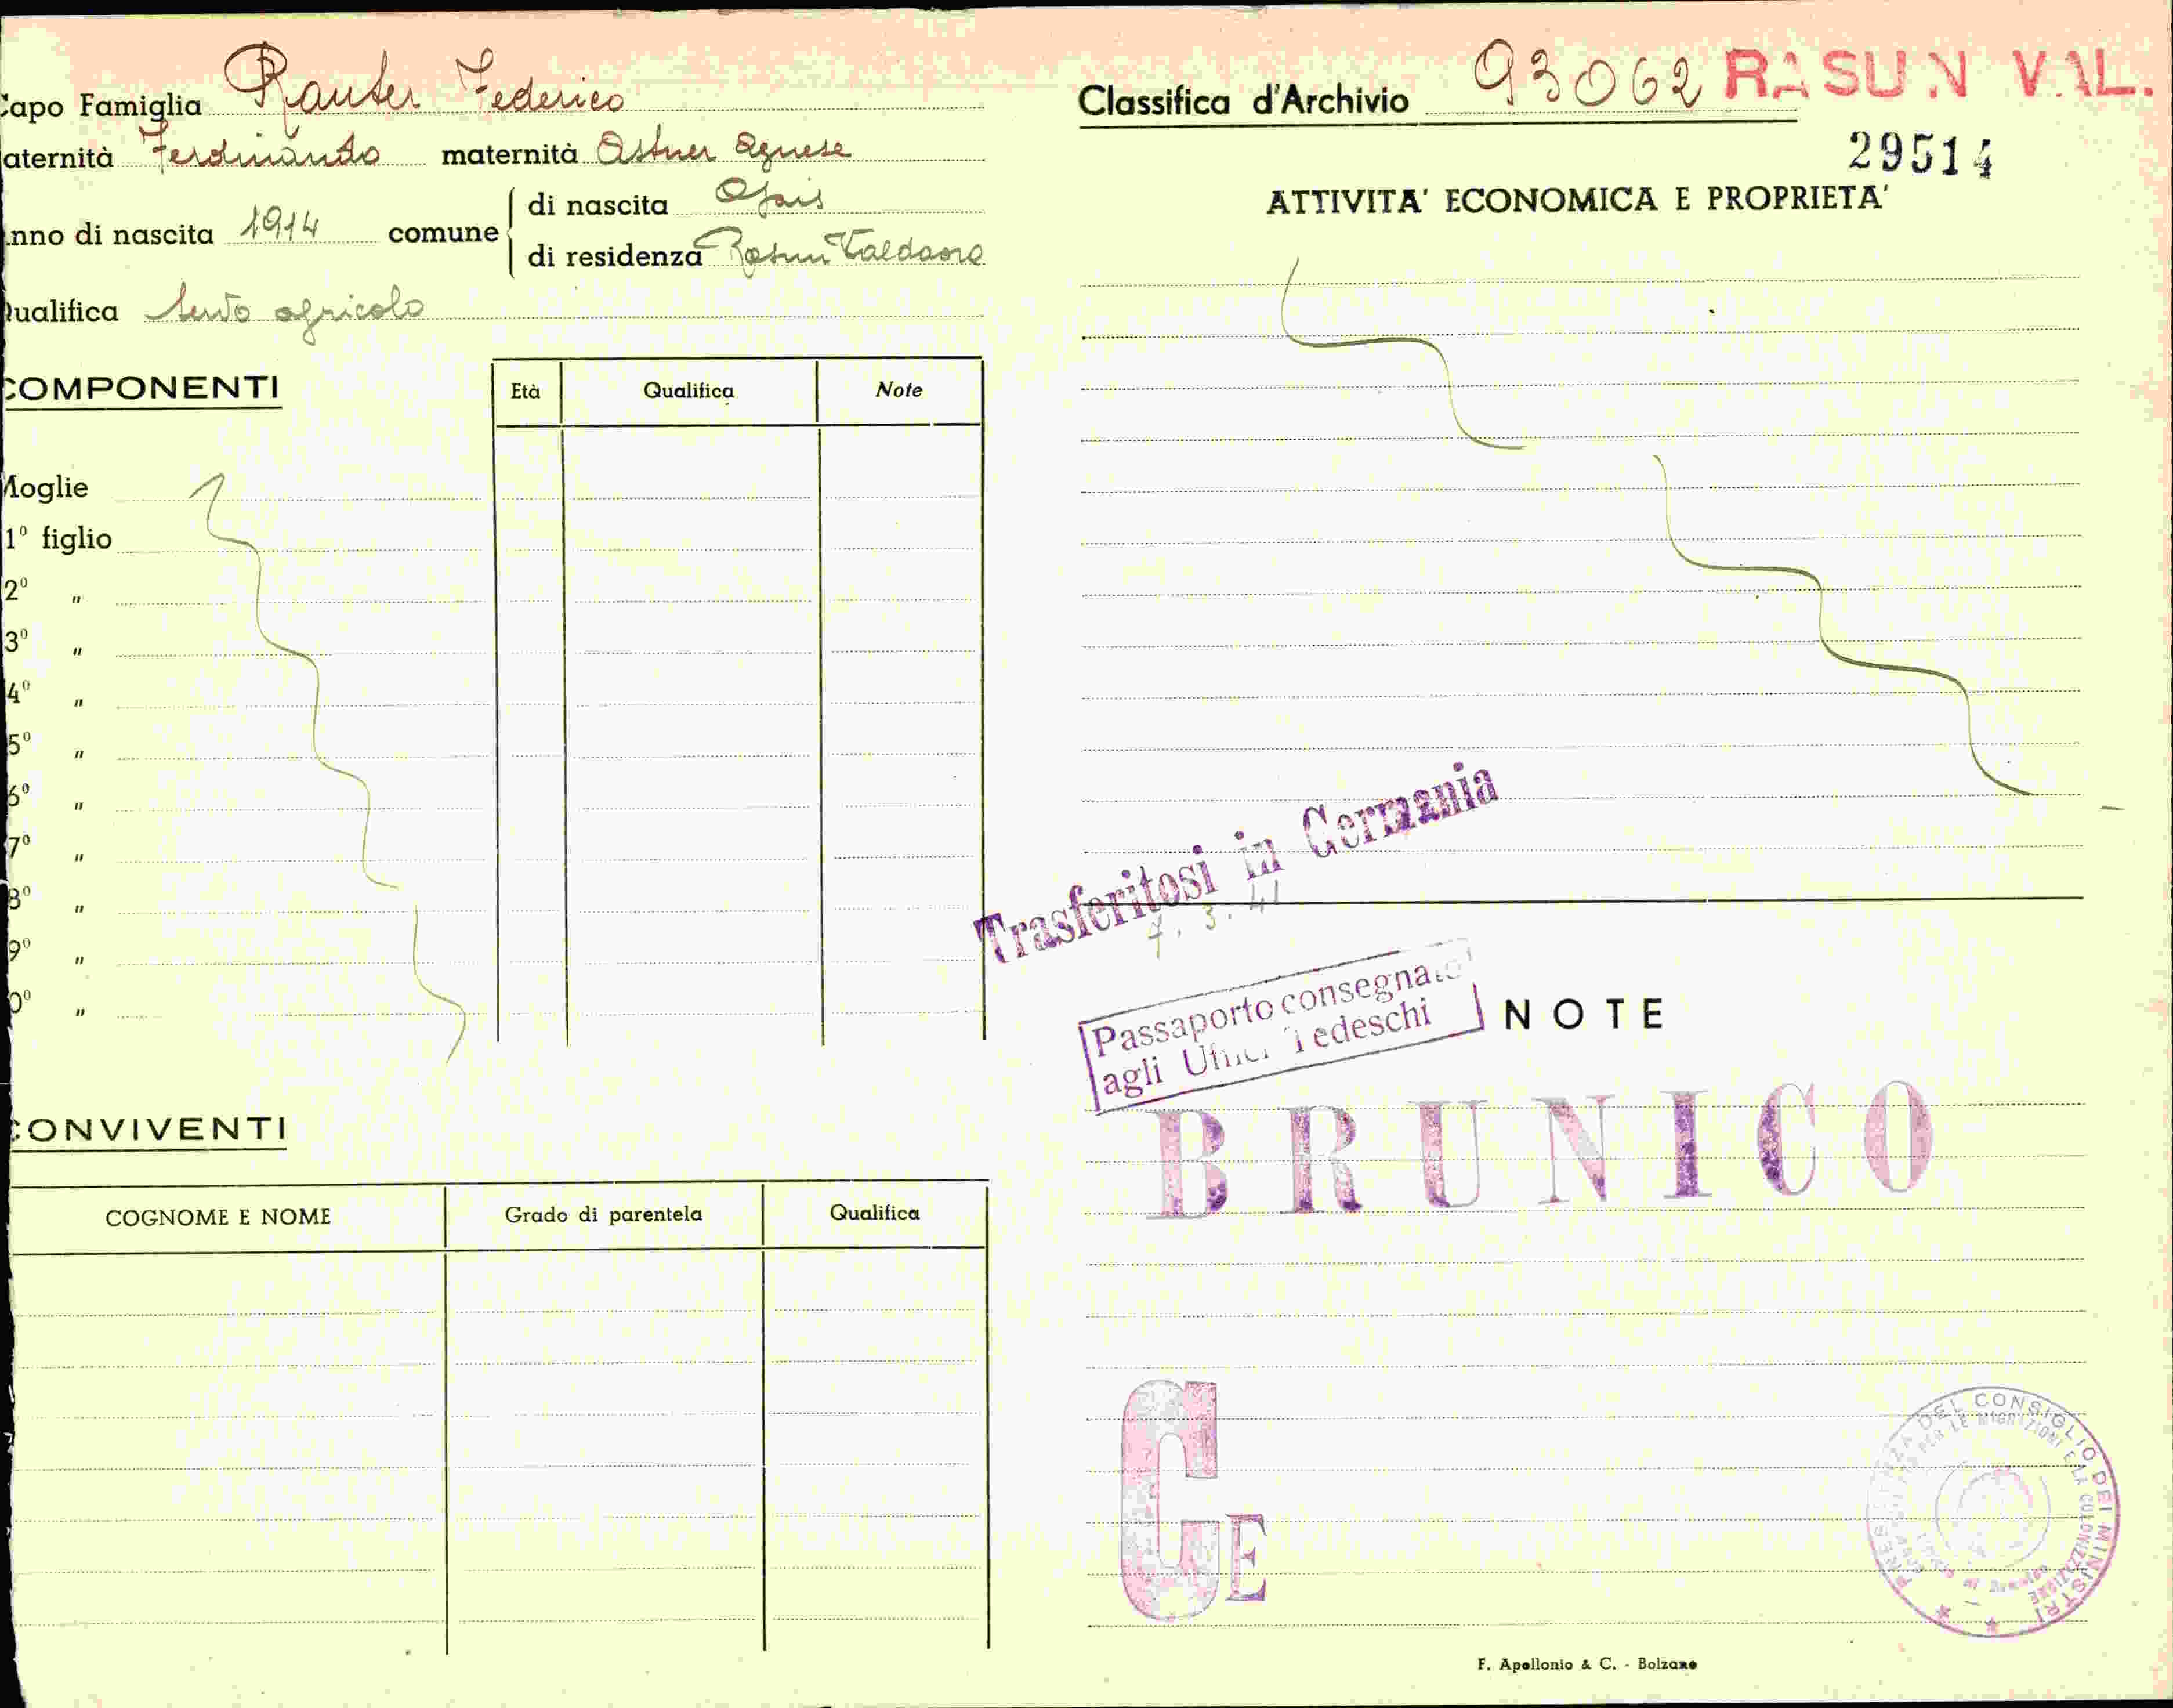 Capo Famiglia Rauter Federico
aternità Ferdinando maternità Astner Agnese
nno di nascita 1914 comune di nascita
di residenza Rasun Valdaora
ualifica servo agricolo
COMPONENTI
Età Qualifica Note
Moglie
1º figlio
2º "
3º "
4º "
5º "
6º "
7º "
8º "
9º "
0º "
CONVIVENTI
COGNOME E NOME Grado di parentela Qualifica
Classifica d'Archivio 93062 RASUN VAL.
29514
ATTIVITA' ECONOMICA E PROPRIETA'
Trasferitosi in Germania
7. 3. 41
Passaporto consegnato
agli Uffici Tedeschi
NOTE
BRUNICO
GE
DEL CONSIGLIO DEI MINISTRI
PER LE MIGRAZIONI E LA COLONIZZAZIONE
F. Apollonio & C. - Bolzano